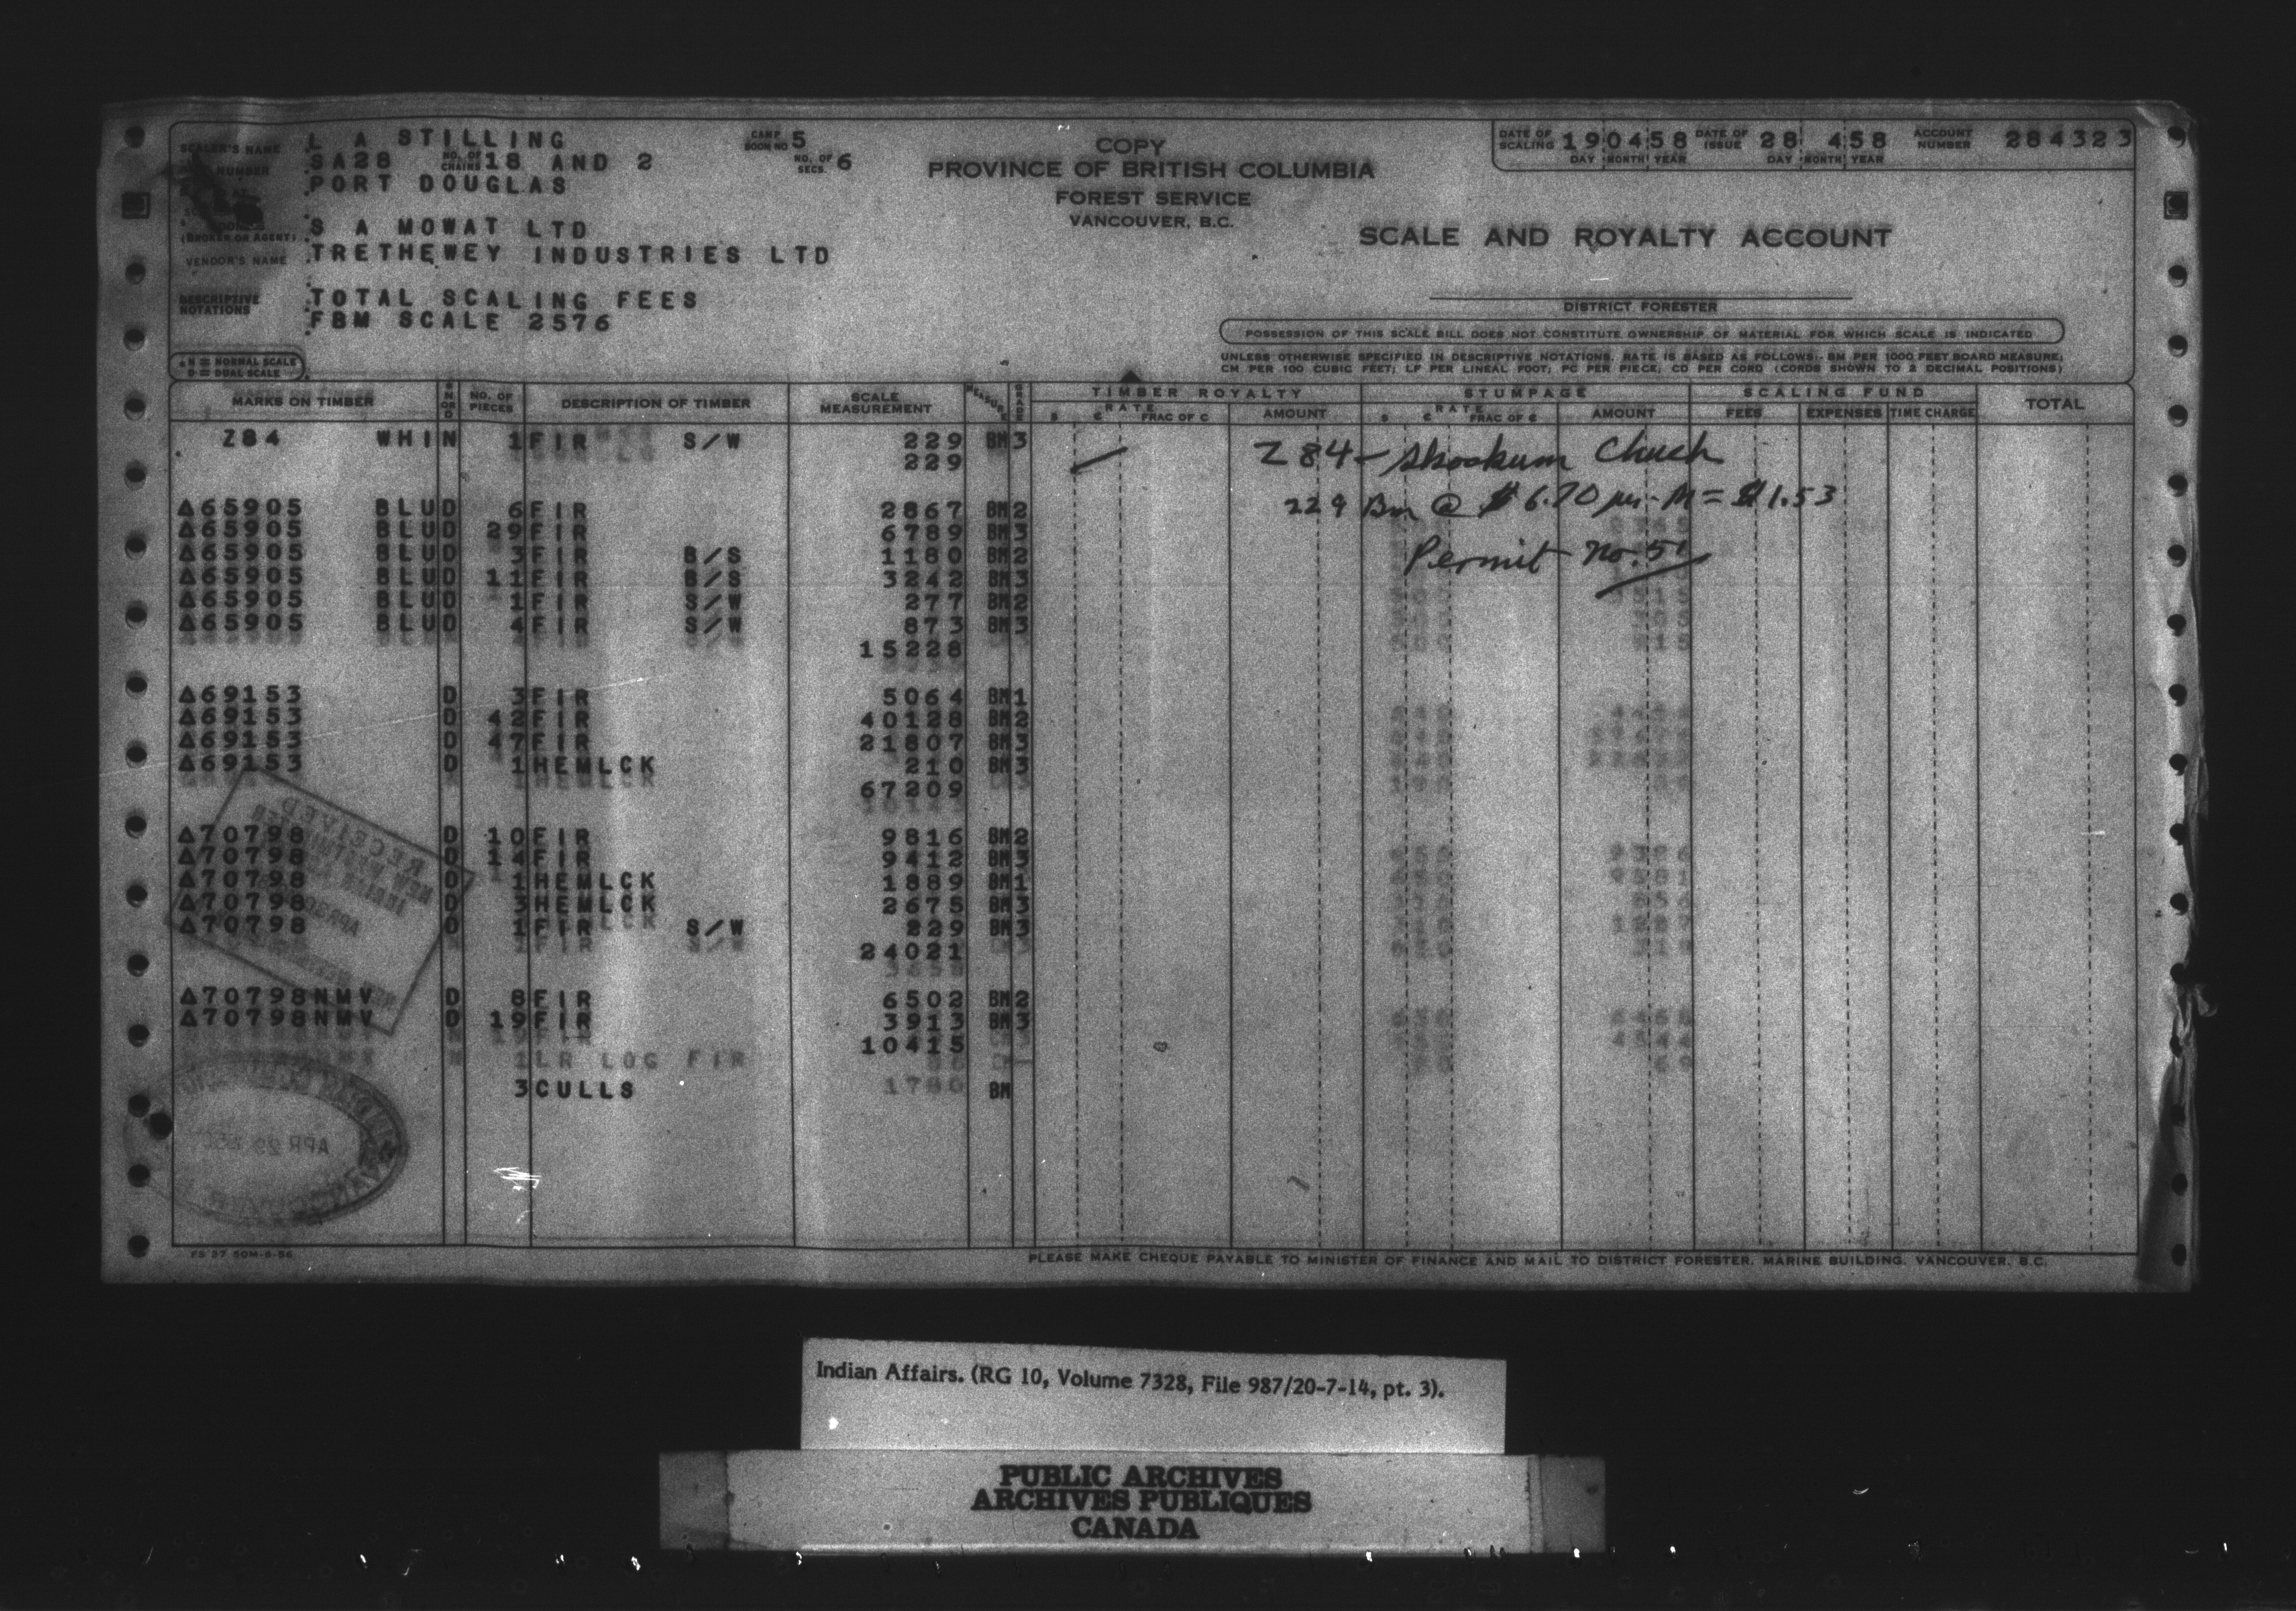 SCALER'S NAME L A STILLING CAMP BOOM NO 5
NUMBER SA28 NO. OF CHAINS 18 AND 2 NO. OF SECS. 6
PORT DOUGLAS
(BROKER OR AGENT) S A MOWAT LTD
VENDOR'S NAME TRETHEWEY INDUSTRIES LTD
DESCRIPTIVE NOTATIONS TOTAL SCALING FEES
FBM SCALE 2576
N = NORMAL SCALE
D = DUAL SCALE
COPY
PROVINCE OF BRITISH COLUMBIA
FOREST SERVICE
VANCOUVER, B.C.
DATE OF SCALING 19 04 58 DATE OF ISSUE 28 4 58 ACCOUNT NUMBER 284323
DAY MONTH YEAR DAY MONTH YEAR
SCALE AND ROYALTY ACCOUNT
DISTRICT FORESTER
POSSESSION OF THIS SCALE BILL DOES NOT CONSTITUTE OWNERSHIP OF MATERIAL FOR WHICH SCALE IS INDICATED
UNLESS OTHERWISE SPECIFIED IN DESCRIPTIVE NOTATIONS, RATE IS BASED AS FOLLOWS:- BM PER 1000 FEET BOARD MEASURE;
CM PER 100 CUBIC FEET; LF PER LINEAL FOOT; PC PER PIECE; CD PER CORD (CORDS SHOWN TO 2 DECIMAL POSITIONS)
MARKS ON TIMBER N OR D NO. OF PIECES DESCRIPTION OF TIMBER SCALE MEASUREMENT MEASURE GRADE TIMBER ROYALTY STUMPAGE SCALING FUND TOTAL
$ RATE ¢ FRAC OF C AMOUNT $ RATE ¢ FRAC OF C AMOUNT FEES EXPENSES TIME CHARGE
Z84 WHI N 1 FIR S/W 229 BM 3
229
Z84 - Skookum Chuck
229 Bm @ $6.70 per M = $1.53
Permit No. 51
Δ65905 BLU D 6 FIR 2867 BM 2
Δ65905 BLU D 29 FIR 6789 BM 3
Δ65905 BLU D 3 FIR B/S 1180 BM 2
Δ65905 BLU D 11 FIR B/S 3242 BM 3
Δ65905 BLU D 1 FIR S/W 277 BM 2
Δ65905 BLU D 4 FIR S/W 873 BM 3
15228
Δ69153 D 3 FIR 5064 BM 1
Δ69153 D 42 FIR 40128 BM 2
Δ69153 D 47 FIR 21807 BM 3
Δ69153 D 1 HEMLCK 210 BM 3
67209
Δ70798 D 10 FIR 9816 BM 2
Δ70798 D 14 FIR 9412 BM 3
Δ70798 D 1 HEMLCK 1889 BM 1
Δ70798 D 3 HEMLCK 2675 BM 3
Δ70798 D 1 FIR S/W 229 BM 3
24021
Δ70798NMV D 8 FIR 6502 BM 2
Δ70798NMV D 19 FIR 3913 BM 3
10415
1 LR LOG FIR
3 CULLS 1780 BM
RECEIVED
APR 29
FS 37 50M-5-56
PLEASE MAKE CHEQUE PAYABLE TO MINISTER OF FINANCE AND MAIL TO DISTRICT FORESTER, MARINE BUILDING, VANCOUVER, B.C.
Indian Affairs. (RG 10, Volume 7328, File 987/20-7-14, pt. 3).
PUBLIC ARCHIVES
ARCHIVES PUBLIQUES
CANADA